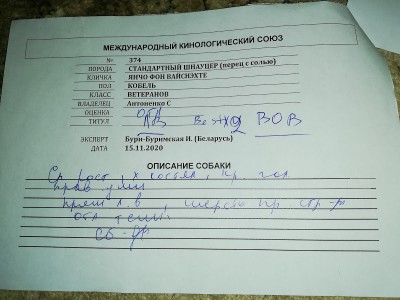 МЕЖДУНАРОДНЫЙ КИНОЛОГИЧЕСКИЙ СОЮЗ
№ 374
ПОРОДА СТАНДАРТНЫЙ ШНАУЦЕР (перец с солью)
КЛИЧКА ЯНЧО ФОН ВАЙСНЭХТЕ
ПОЛ КОБЕЛЬ
КЛАСС ВЕТЕРАНОВ
ВЛАДЕЛЕЦ Антоненко С
ОЦЕНКА
ТИТУЛ ВОВ
ЭКСПЕРТ Бури-Буримская И. (Беларусь)
ДАТА 15.11.2020
ОПИСАНИЕ СОБАКИ
Ср рост, х костяк, пр. гол
прав
шерсть пр стр-ры
отл темп